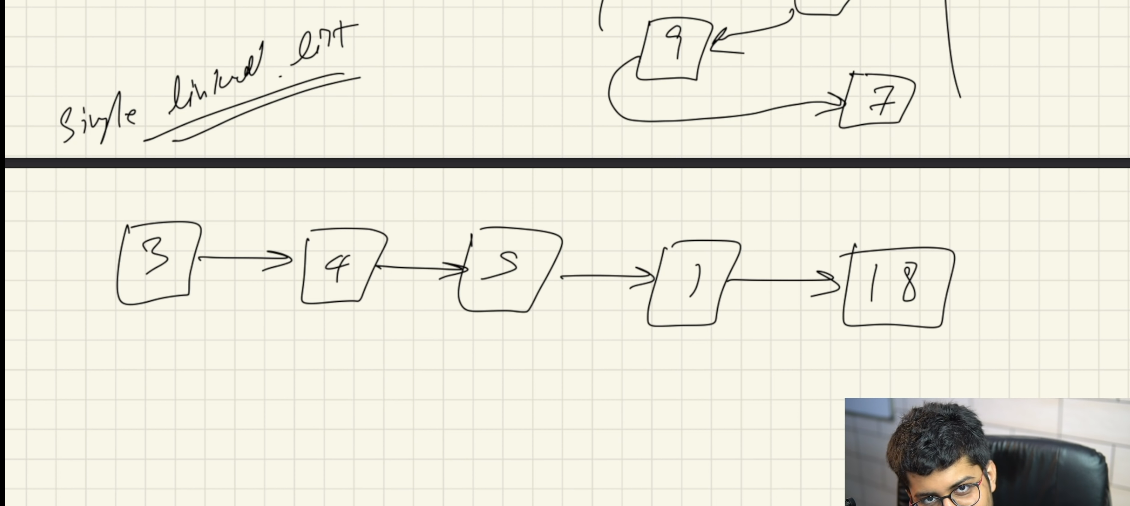 Single linked list
9
7
3 4 5 1 18